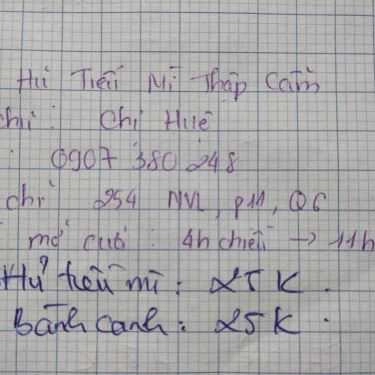 Hủ Tiếu Mì Thập Cẩm
chủ : Chị Huê
: 0907 380 248
chỉ 254 NVL, p11, Q6
mở cửa : 4h chiều → 11h
Hủ tiếu mì : 25 K .
Bánh canh : 25 K .